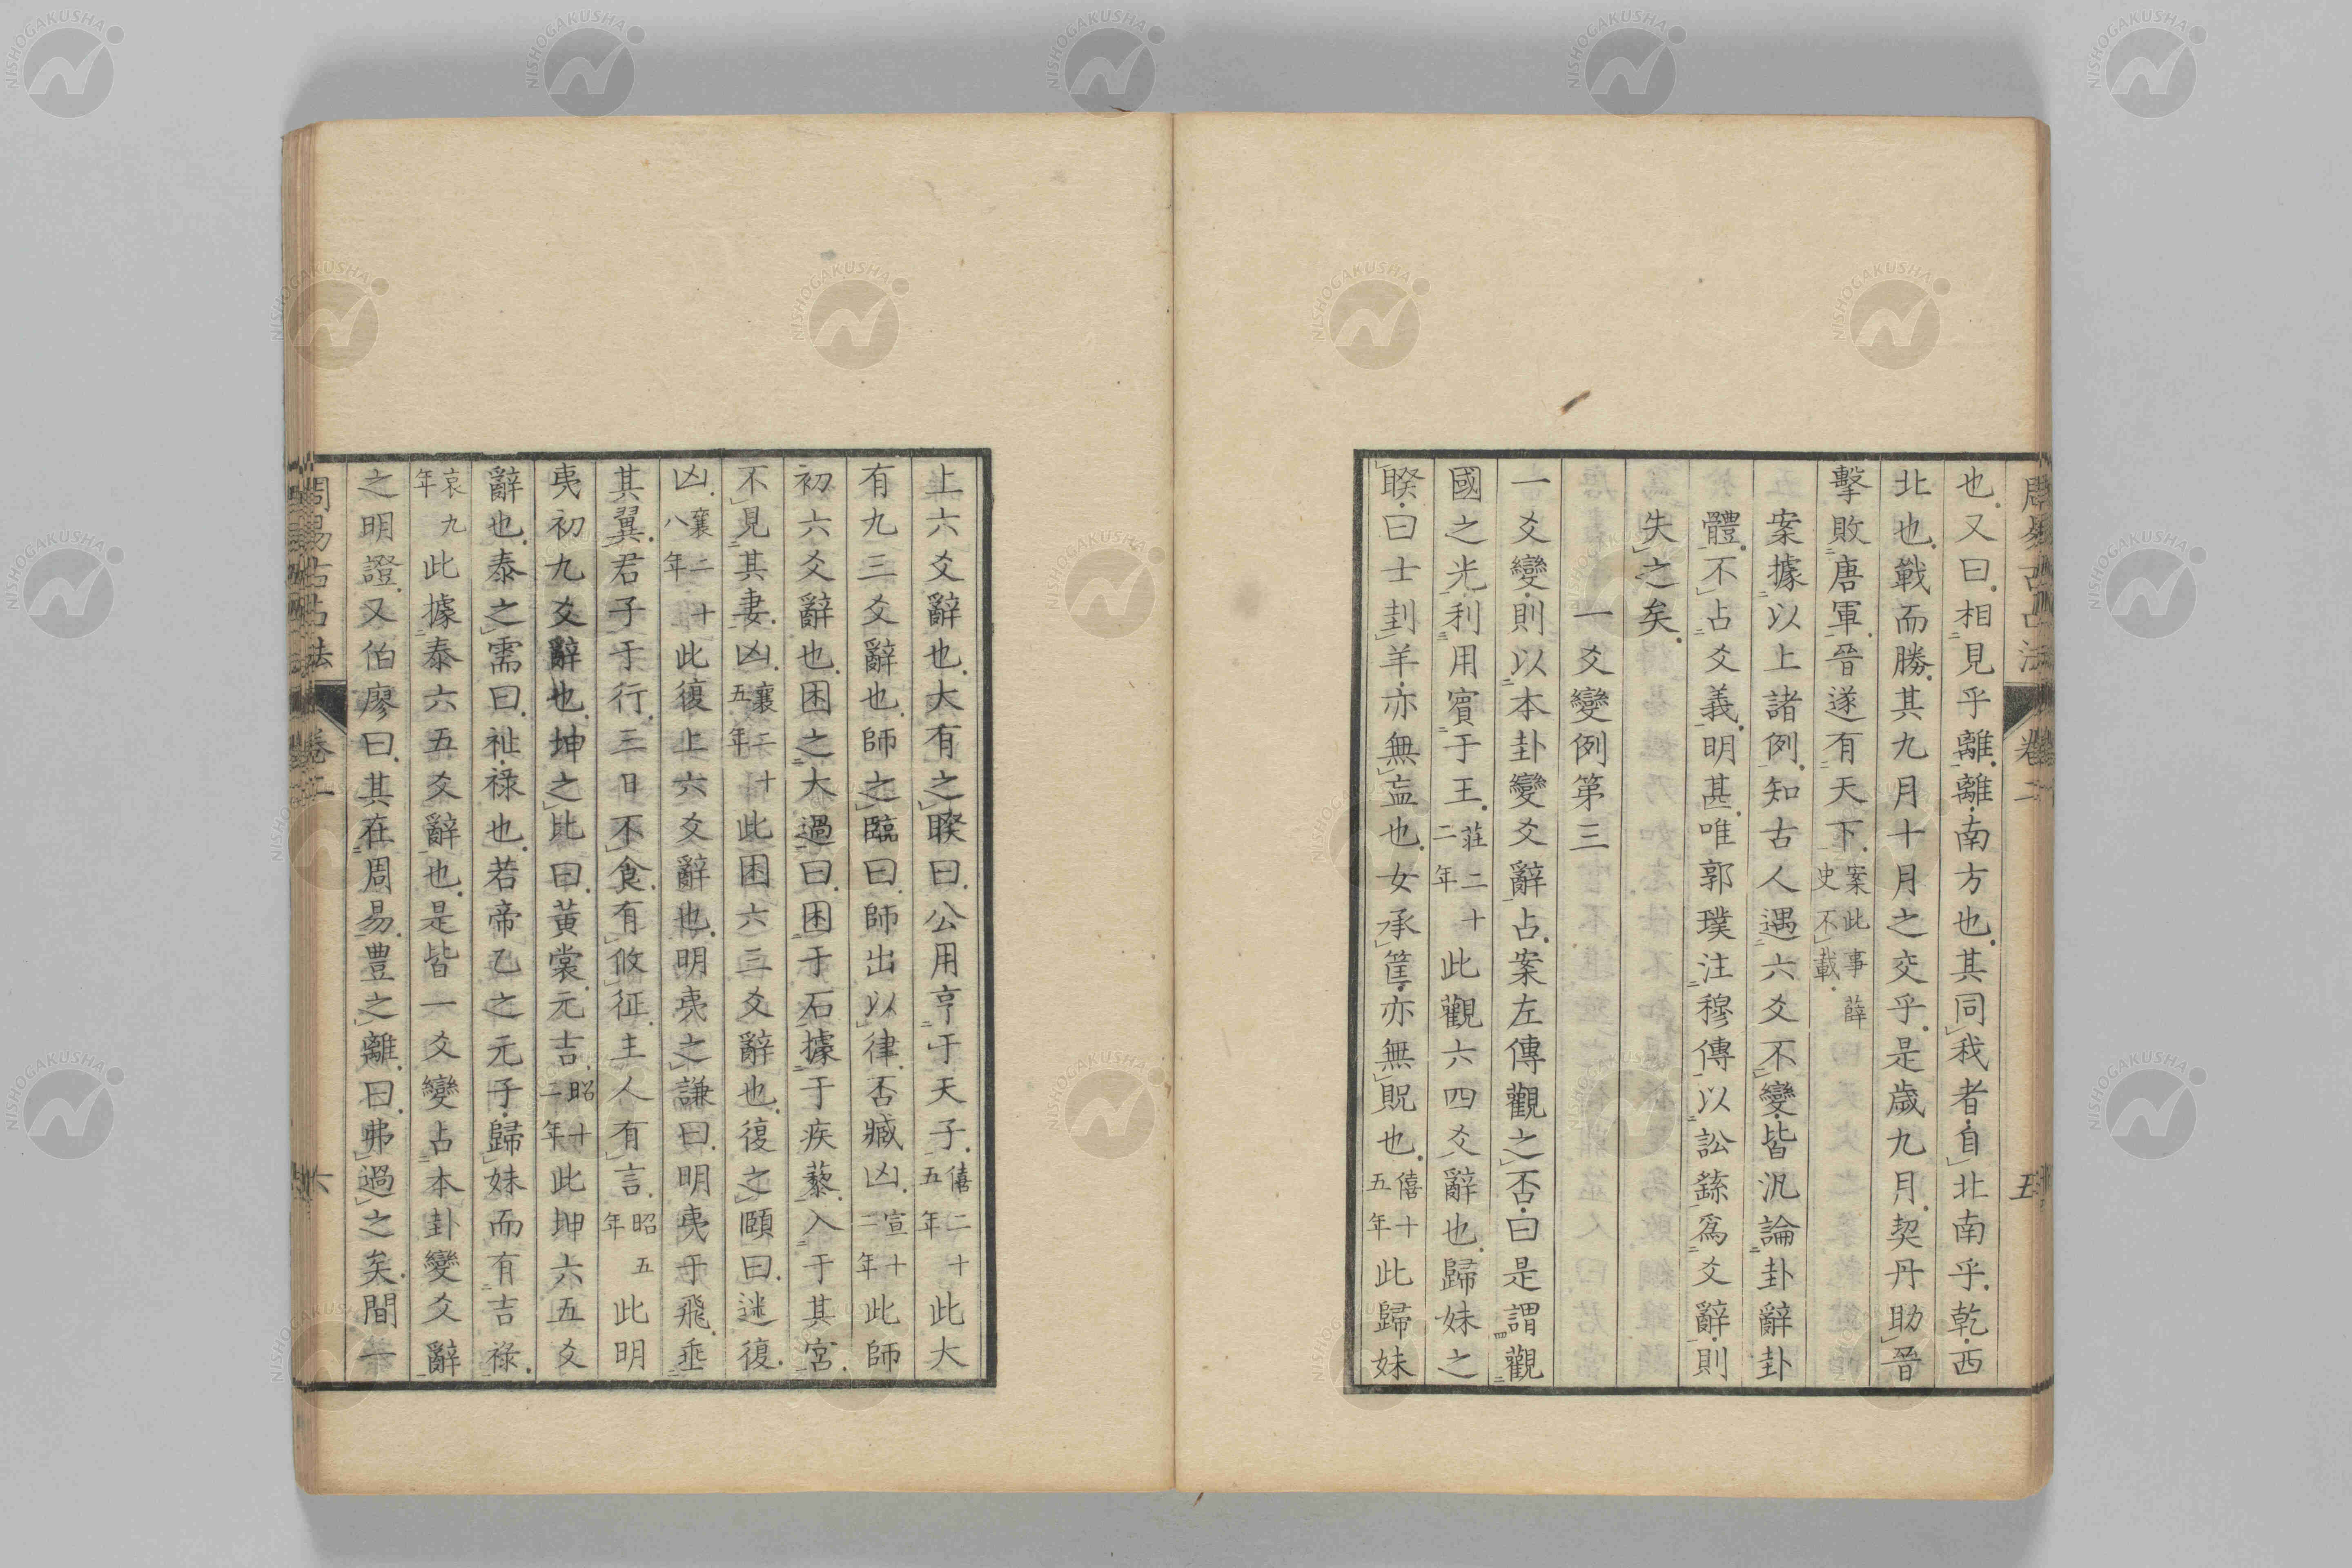 周易古占法 卷二 五
也又曰相見乎離離南方也其同我者自北南乎乾西
北也戰而勝其九月十月之交乎是歲九月契丹助晉
擊敗唐軍晉遂有天下案此事薛史不載
案據以上諸例知古人遇六爻不變皆汎論卦辭卦
體不占爻義明甚唯郭璞注穆傳以訟繇爲爻辭則
失之矣
一爻變例第三
一爻變則以本卦變爻辭占案左傳觀之否曰是謂觀
國之光利用賓于王莊二十二年此觀六四爻辭也歸妹之
睽曰士刲羊亦無衁也女承筐亦無貺也僖十五年此歸妹
上六爻辭也大有之睽曰公用亨于天子僖二十五年此大
有九三爻辭也師之臨曰師出以律否臧凶宣十二年此師
初六爻辭也困之大過曰困于石據于疾藜入于其宮
不見其妻凶襄二十五年此困六三爻辭也復之頤曰迷復
凶襄二十八年此復上六爻辭也明夷之謙曰明夷于飛垂
其翼君子于行三日不食有攸征主人有言昭五年此明
夷初九爻辭也坤之比曰黃裳元吉昭十二年此坤六五爻
辭也泰之需曰祉祿也若帝乙之元子歸妹而有吉祿
哀九年此據泰六五爻辭也是皆一爻變占本卦變爻辭
之明證又伯廖曰其在周易豐之離曰弗過之矣間一
周易古占法 卷二 六
NISHOGAKUSHA